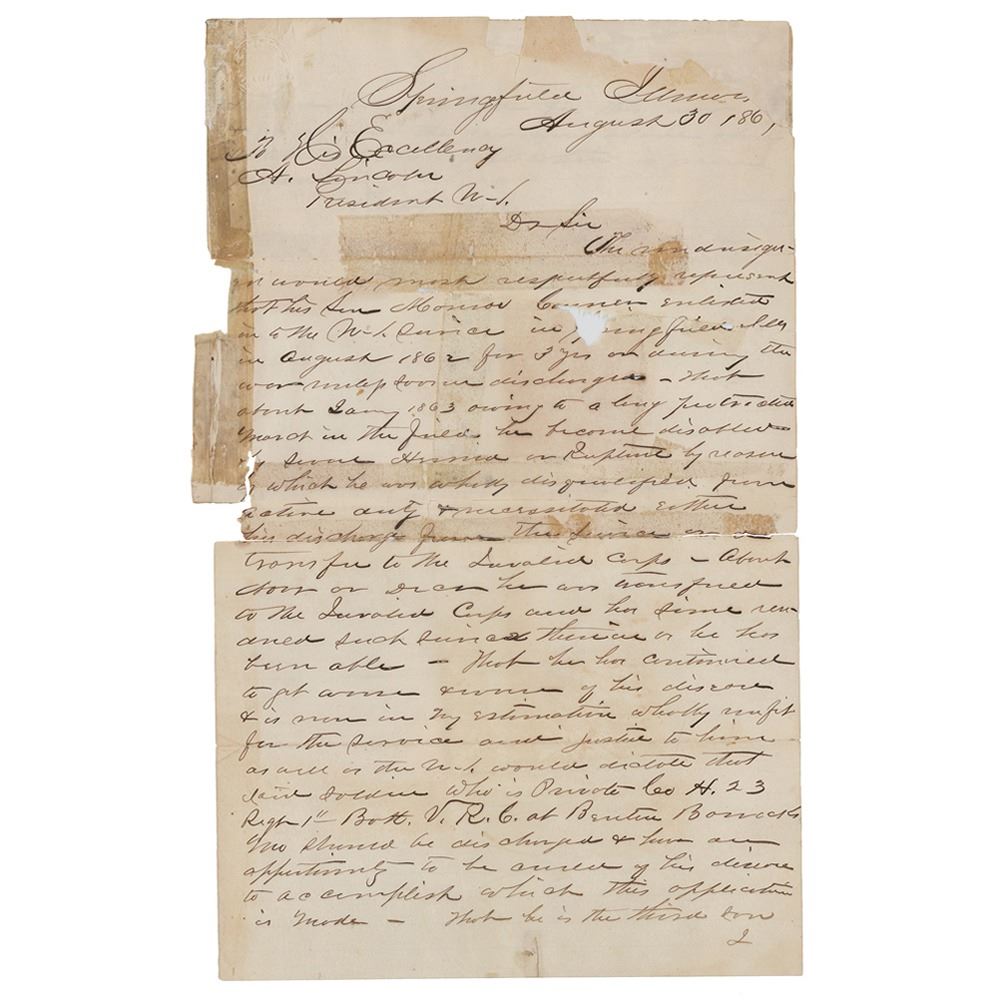 Springfield Illinois
August 30 186
To His Excellency
A. Lincoln
President U.S.
Dr Sir
The undersign-
ed would most respectfully represent
that his Son Monroe enlisted
into the U.S. Service in Springfield Ills
in August 1862 for 3 yrs or during the
war unless sooner discharged – that
about Jany 1863 owing to a long protracted
March in the field he become disabled
by severe Hernia or Rupture by reason
of which he was wholly disqualified from
active duty & necessitated either
his discharge from the Service or a
transfer to the Invalid Corps – About
Nov or Decr he was transfered
to the Invalid Corps and has since ren-
dered such service therein as he has
been able – That he has continued
to get worse & worse of his disease
& is now in my estimation wholly unfit
for the service and justice to him
as well as the U.S. would dictate that
said soldier who is Private Co H. 23
Regt 1st Batt. V. R. C. at Benton Barracks
Mo should be discharged & have an
opportunity to be cured of his disease
to accomplish which this application
is made – That he is the third son